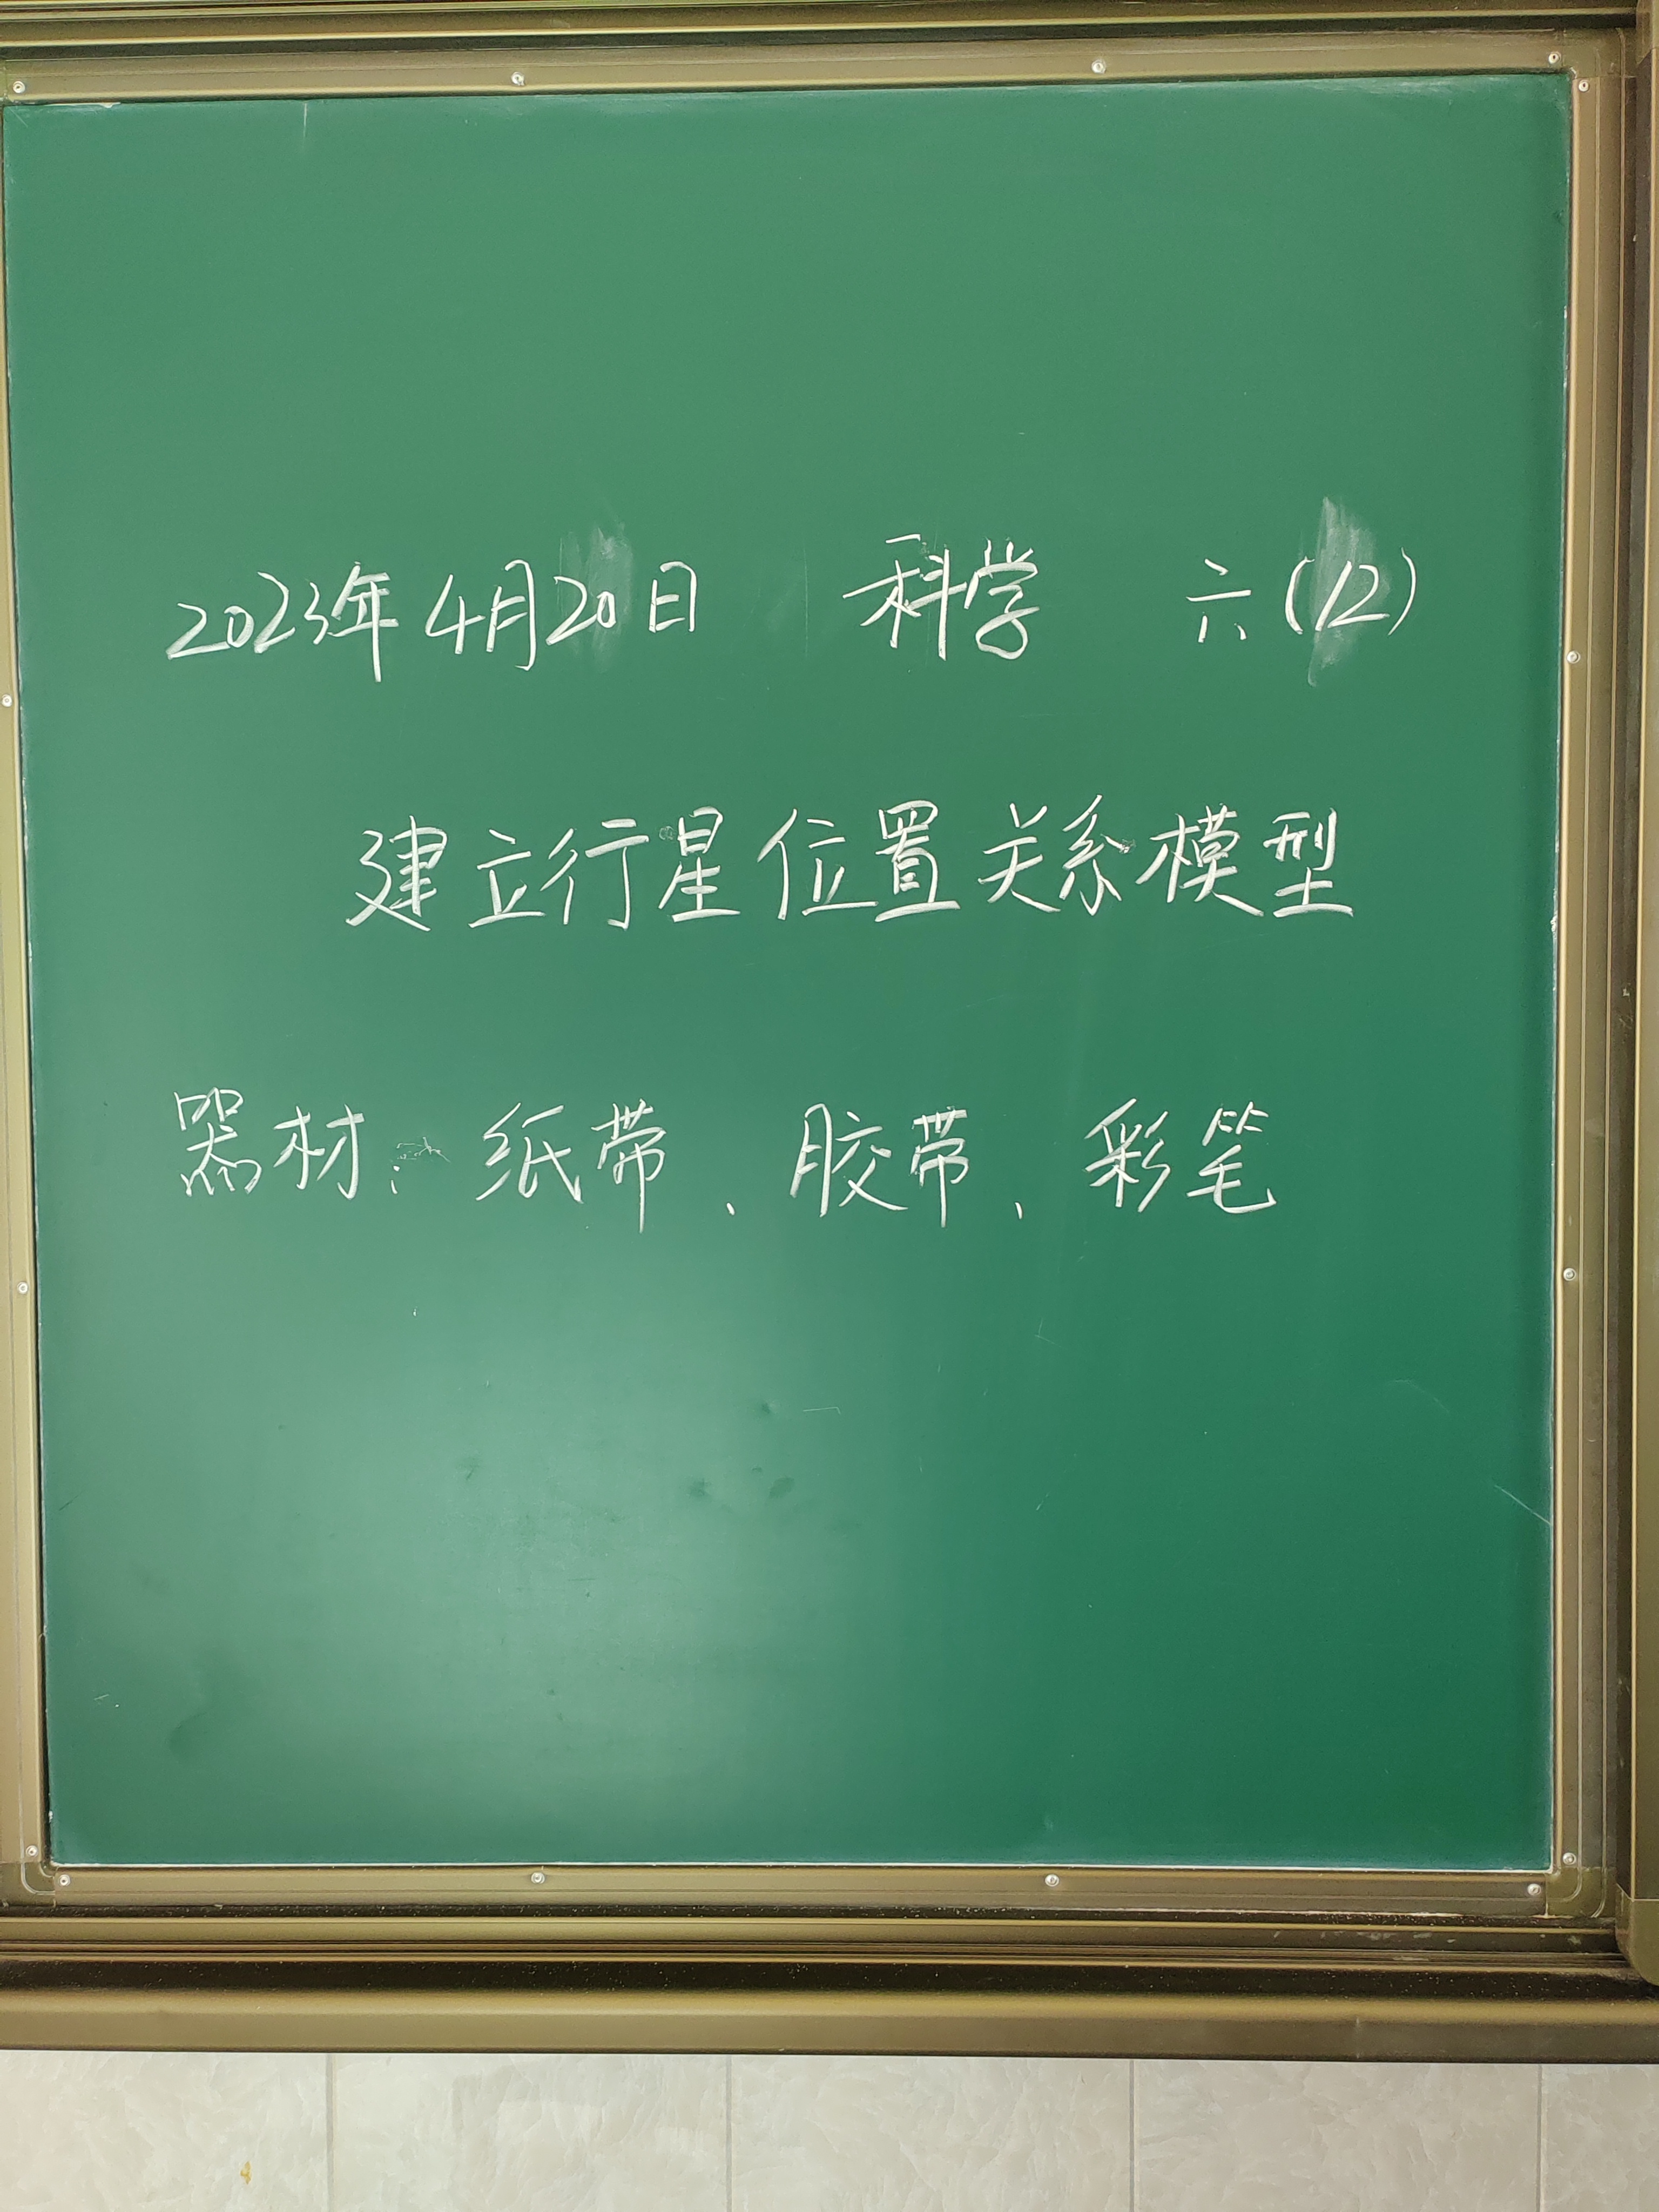 2023年4月20日 科学 六(12)
建立行星位置关系模型
器材：纸带、胶带、彩笔